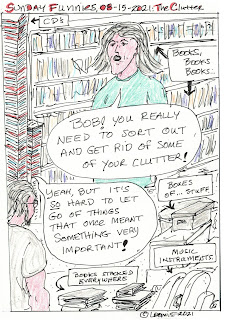 SUNDAY FUNNIES, 08-15-2021: THE CLUTTER
← CDs
BOOKS,
BOOKS
BOOKS..
BOB! YOU REALLY
NEED TO SORT OUT
AND GET RID OF SOME
OF YOUR CLUTTER!
YEAH, BUT IT'S
SO HARD TO LET
GO OF THINGS
THAT ONCE MEANT
SOMETHING VERY
IMPORTANT!
BOXES
OF... STUFF
MUSIC
INSTRUMENTS
BOOKS STACKED
EVERYWHERE